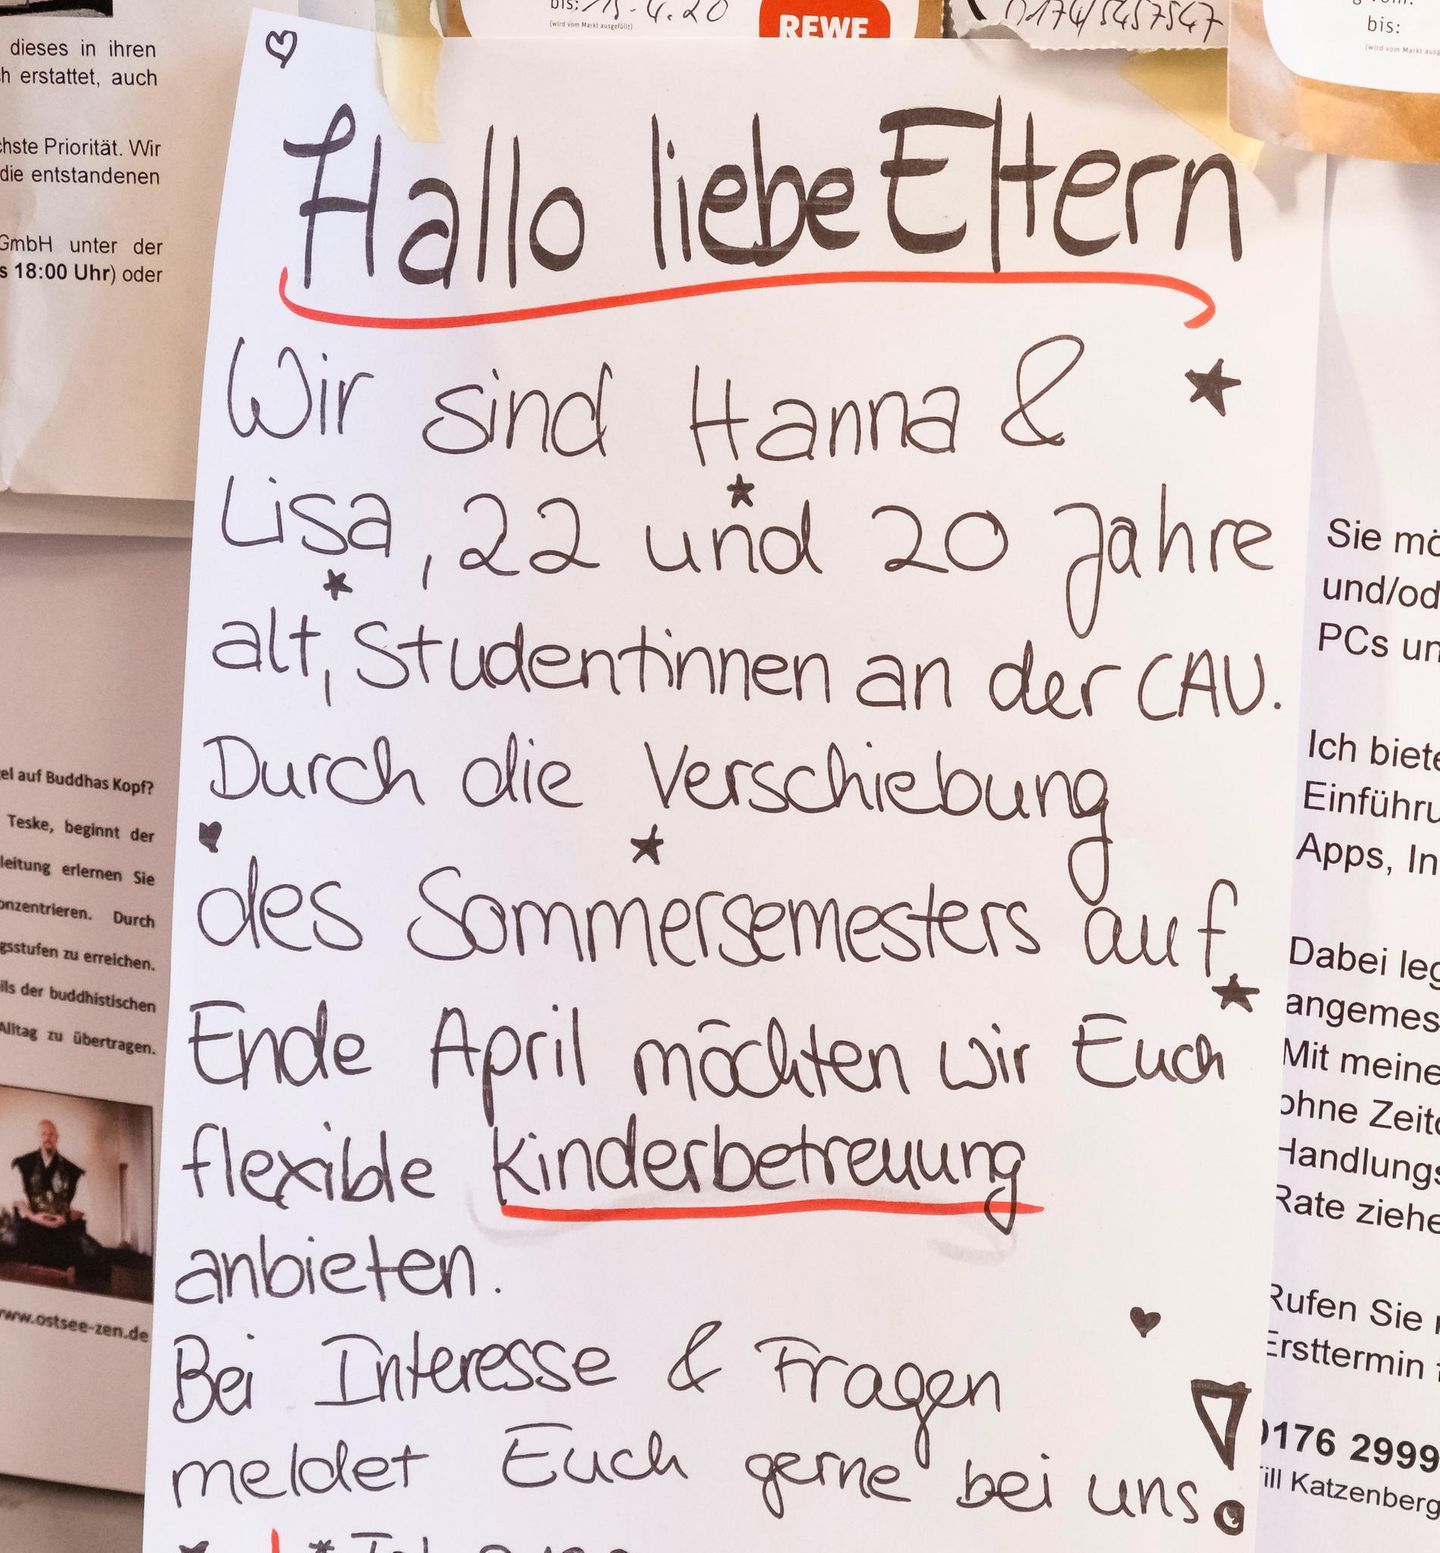 dieses in ihren
erstattet, auch
Priorität. Wir
die entstandenen
GmbH unter der
18:00 Uhr) oder
bis: 15.4.20
(wird vom Markt ausgefüllt)
REWE
0174/5457547
bis:
(wird vom Markt
Hallo liebe Eltern
Wir sind Hanna &
Lisa, 22 und 20 Jahre
alt, Studentinnen an der CAU.
Durch die Verschiebung
des Sommersemesters auf
Ende April möchten wir Euch
flexible Kinderbetreuung
anbieten.
Bei Interesse & Fragen
meldet Euch gerne bei uns!
auf Buddhas Kopf?
Teske, beginnt der
erlernen Sie
Durch
zu erreichen.
der buddhistischen
Alltag zu übertragen.
www.ostsee-zen.de
Sie
und/od
PCs
Ich
Einführu
Apps, In
Dabei
angemes
Mit meine
ohne Zeit
Handlungs
Rate ziehe
Rufen Sie
Ersttermin
0176 2999
Till Katzenberg